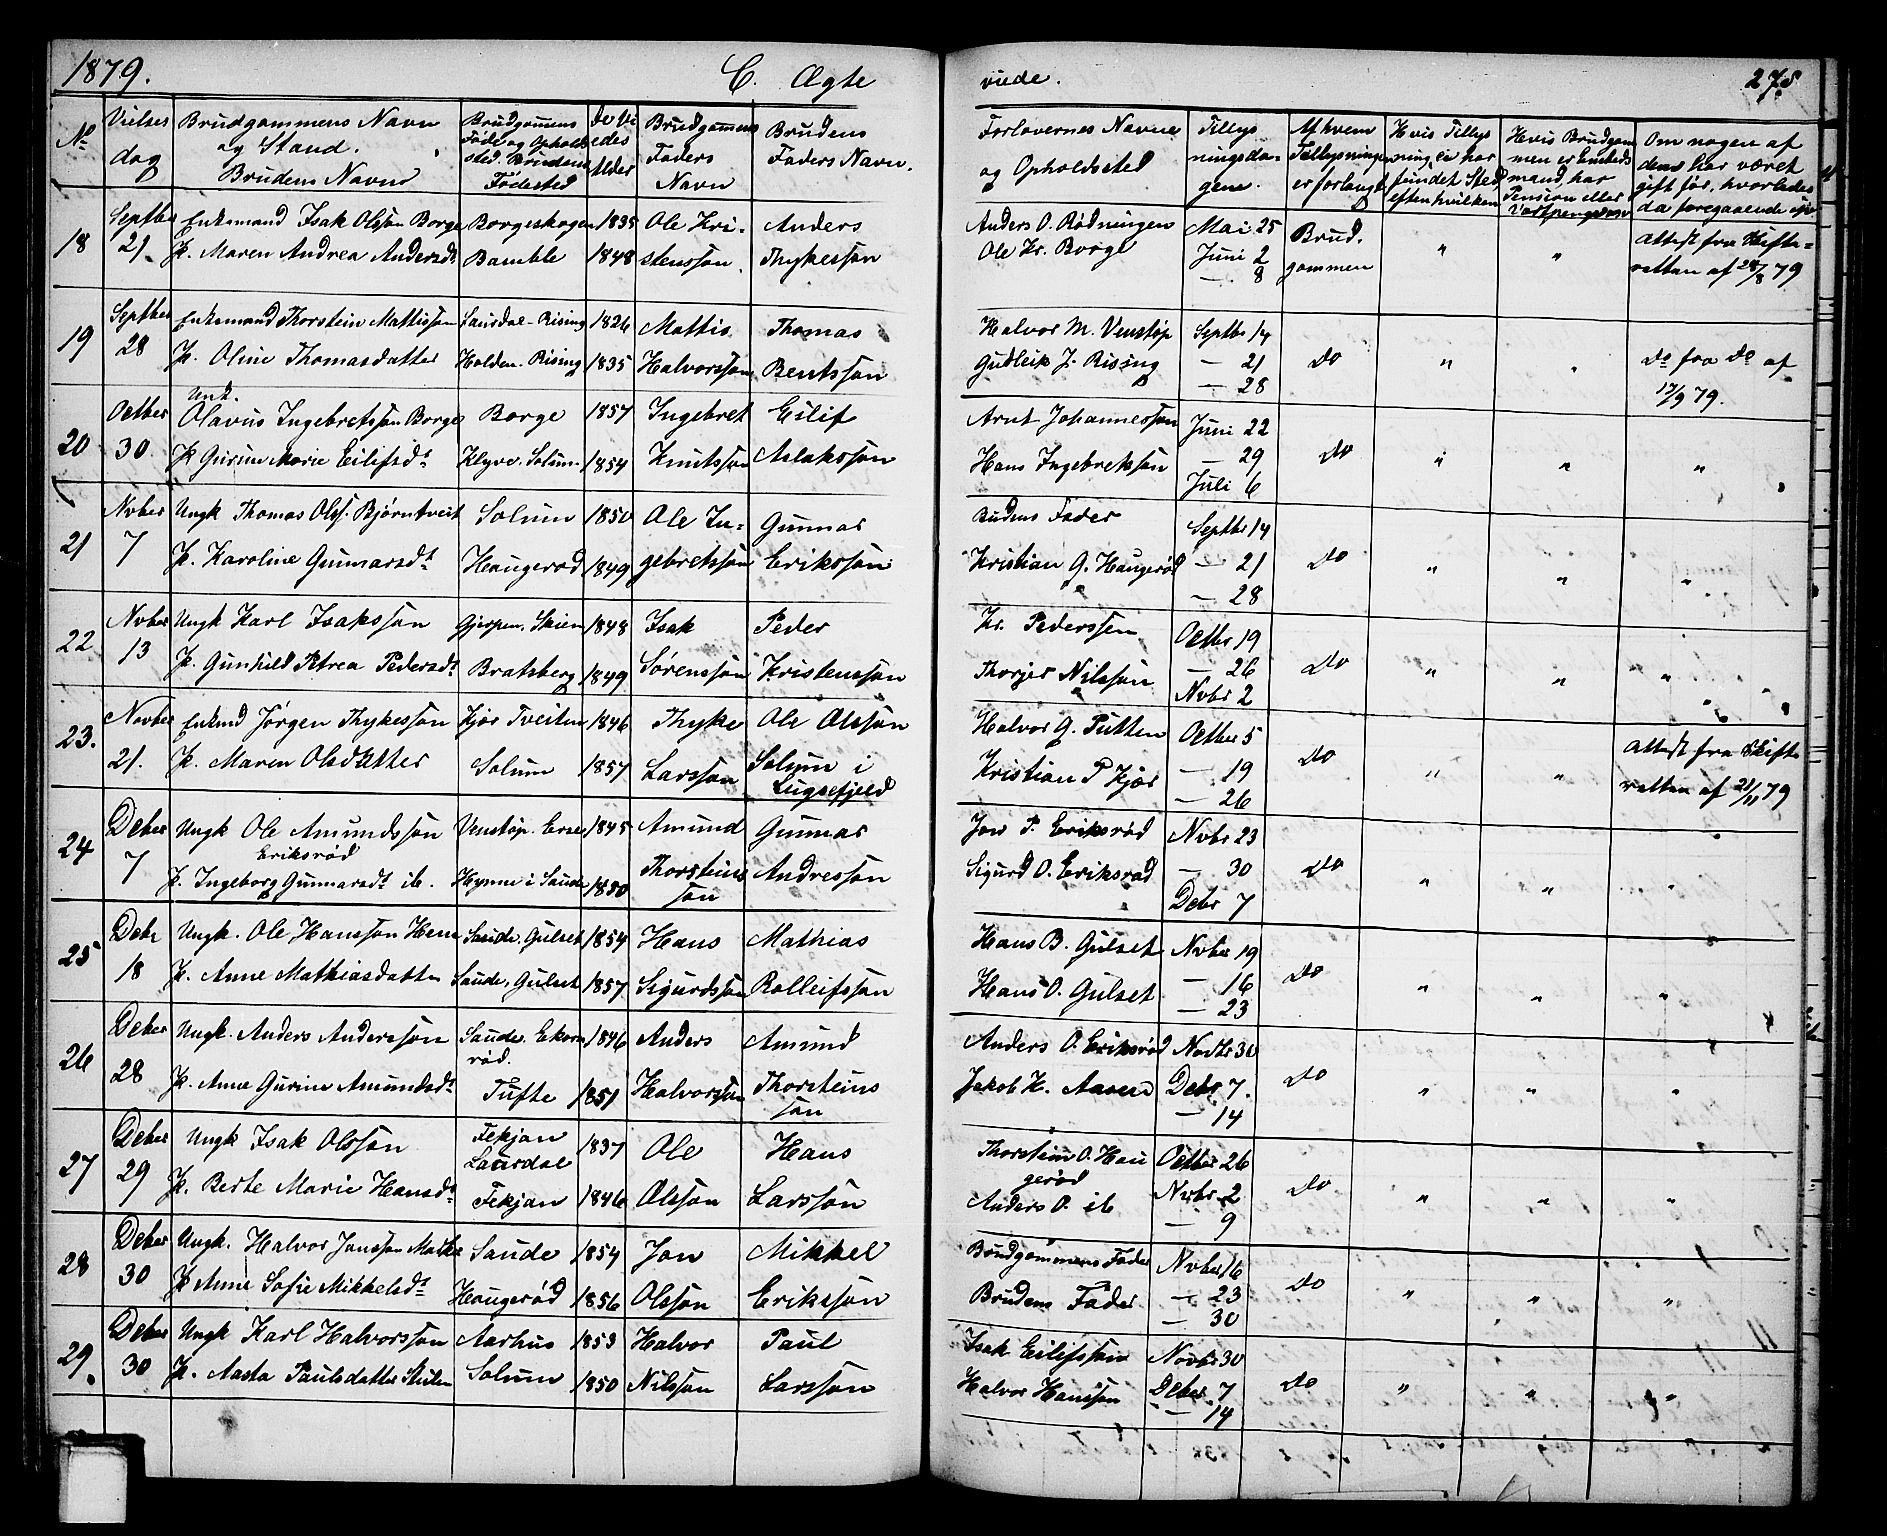 1879.
C. Ægte
viede.
275
No
Vielses dag
Brudgommens Navn og Stand. Brudens Navn
Brudgommens Føde og Opholdssted. Brudens Fødested
De Viedes Alder
Brudgommens Faders Navn
Brudens Faders Navn.
Forlovernes Navne og Opholdssted
Tillysningsdagene.
Af hvem Tillysningen er forlangt
Hvis Tillysning ei har fundet Sted efter hvilken
Hvis Brudgommen er Embedsmand, har Pension eller
Om nogen af dem har været gift før, hvorledes da foregaaende
18
Septber 21.
Enkemand Isak Olsson Borge
P. Maren Andrea Andersdt
Borgeskogen
Bamble
1835
1848
Ole Kristensson.
Anders Thykesson
Anders O. Rødningen
Ole Kr. Borge
Mai 25
Juni 2
— 8
Brudgommen
"
"
Attest fra Skifteretten af 28/8 79
19
Septber 28
Enkemand Thorstein Mattisson
P. Oline Thomasdatter
Laursdal-Rising
Holden-Rising
1826
1835
Mattis Halvorsson
Thomas Bentsson
Halvor M. Venstøp
Gudleik J. Rising
Septbr 14
— 21
— 28
Do
"
"
Do fra Do af 17/9 79.
20
Octber 30.
Ungk.
Olavus Ingebretsson Borge
P. Gurine Marie Eilifsdt
Borge
Klyve. Solum
1857
1854
Ingebret Knutsson
Eilif Aslaksson
Arnt Johannesson
Hans Ingebretsson
Juni 22
— 29
Juli 6
Do
"
"
"
21
Novber 7
Ungk Thomas Olss. Bjørntveit
P. Karoline Gunnarsdt
Solum
Haugerød
1850
1849
Ole Ingebretsson
Gunnar Eriksson
Budens Fader
Kristian G. Haugerød
Septbr 14
— 21
— 28
Do
"
"
"
22
Novber 13
Ungk Karl Isaksson
P. Gunhild Petrea Pedersdt
Gjerpen. Skien
Bratsberg
1848
1849
Isak Sørensson
Peder Kristensson
Kr. Pederssen
Thorjer Nilsson
Octbr 19
— 26
Novbr 2
Do
"
"
"
23.
Novber 21.
Enkmd Jørgen Thykesson
P. Maren Olsdatter
Kjær Tveiten
Solum
1846
1857
Thyke Larsson
Ole Olsson
Solum i Lugsefjeld
Halvor G. Putten
Kristian P Kjær
Octber 5
— 19
— 26
Do
"
"
Attest fra Skifteretten af 21/11 79
24
Debr 7
Ungk Ole Amundsson
Eriksrød
P. Ingeborg Gunnarsdt ib.
Venstøp.
Hynne i Saude
1845
1850
Amund Thorsteinsson
Gunnar Andresson
Jon P. Eriksrød
Sigurd O. Eriksrød
Novbr 23
— 30
Debr 7
Do
"
"
"
25
Debr 18
Ungk. Ole Hansson Hem
P. Anne Mathiasdatter
Saude. Gulset
Saude, Gulset
1854
1857
Hans Sigurdsson
Mathias Rolleifsson
Hans B. Gulset
Hans O. Gulset
Novber 19
— 16
— 23
Do
"
"
"
26
Deber 28
Ungk. Anders Andersson
P. Anne Gurine Amundsdt
Saude. Ekornrød.
Tufte
1846
1851
Anders Halvorsson
Amund Thorsteinsson
Anders O. Eriksrød
Jakob K.
Novbr 30
Debr 7.
— 14
Do
"
"
"
27
Deber 29
Ungk Isak Olsson
P. Berte Marie Hansdt
Fekjan Laursdal
Fekjan
1837
1846
Ole Olsson
Hans Larsson
Thorstein O. Haugerød
Anders O. ib
Octbr 26
Novbr 2
— 9
Do
"
"
"
28
Deber 30
Ungk. Halvor Jonsson
P Anne Sofie Mikkelsdt
Saude
Haugerød
1854
1856
Jon Olsson
Mikkel Eriksson
Brudgommens Fader
Brudens Fader
Novber 16
— 23
— 30
Do
"
"
"
29.
Deber 30
Ungk Karl Halvorsson
P. Aasta Paulsdatter
Aarhus
Solum
1853
1850
Halvor Nilsson
Paul Larsson
Isak Eilifsson
Halvor Hansson
Novbr 30
Deber 7
— 14
Do
"
"
"